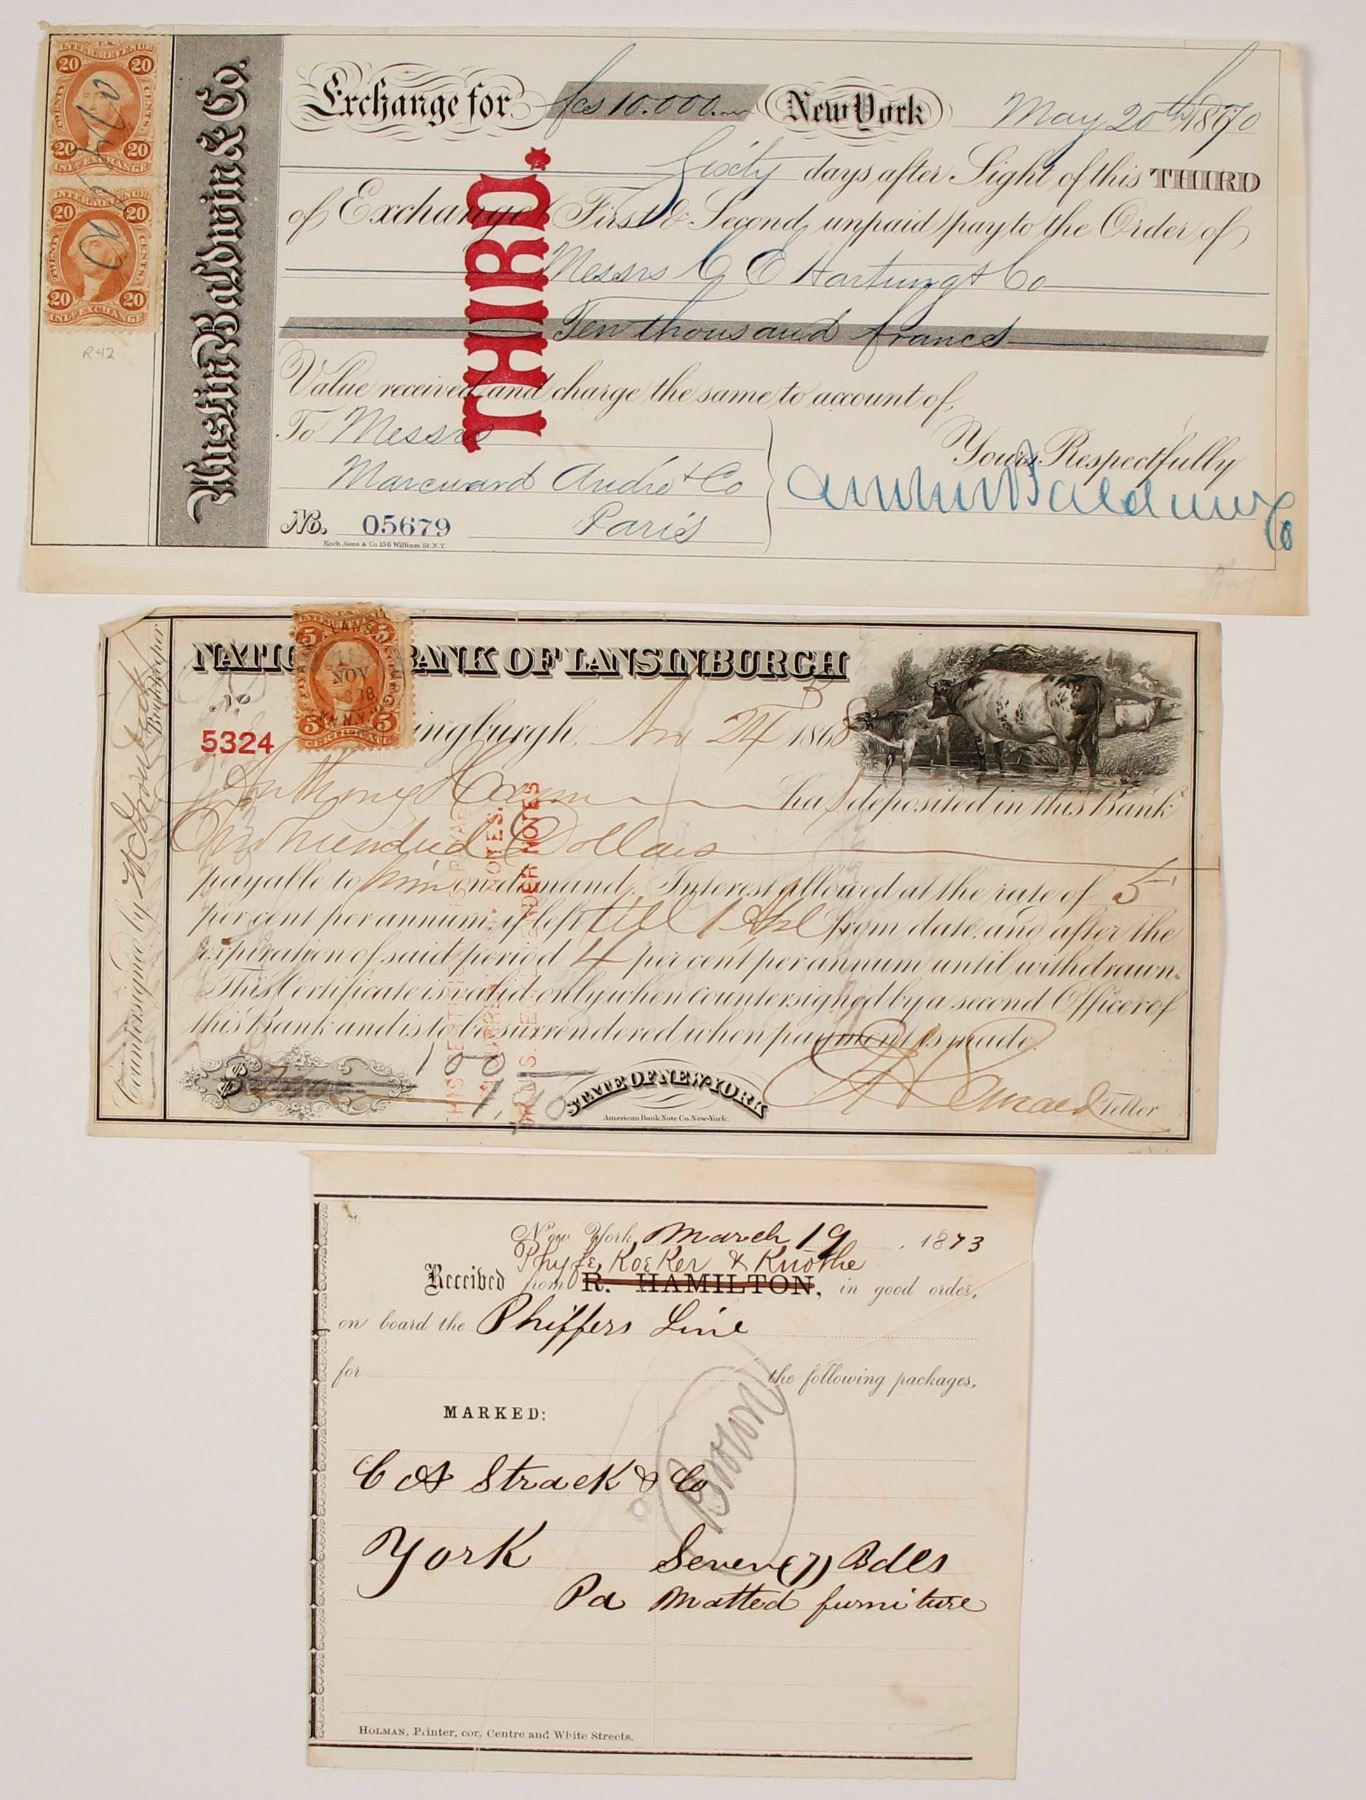 U.S. INTER. REVENUE
20 20
TWENTY CENTS
20 20
INL. EXCHANGE
U.S. INTER. REVENUE
20 20
TWENTY CENTS
20 20
INL. EXCHANGE
R42
Austin Baldwin & Co.
Exchange for fcs 10.000. New York May 20th 1870
Sixty days after Sight of this THIRD
of Exchange (First & Second unpaid) pay to the Order of
Messrs G E Hartung & Co
Ten thousand francs
Value received and charge the same to account of
To Messrs Yours Respectfully
Marcuard André & Co Austin Baldwin & Co
No. 05679 Paris
Koch, Sons & Co. 156 William St. N.Y.
THIRD.
NATIONAL BANK OF LANSINBURGH
5 5
NOV
5 5
CERTIFICATE
No
5324
Lansingburgh, Nov 24 1868
Anthony has deposited in this Bank
One hundred Dollars
payable to him on demand. Interest allowed at the rate of 5
per cent per annum if left till 1 Apl from date, and after the
expiration of said period 4 per cent per annum until withdrawn.
This Certificate is valid only when countersigned by a second Officer of
this Bank and is to be surrendered when payment is made.
$ 100
1,90
STATE OF NEW-YORK
American Bank Note Co. New-York.
Teller
Countersigned by Bookkeeper
New York, March 19, 1873
Phyfe, Koeker & Knothe
Received from R. HAMILTON, in good order,
on board the Phiffers Line
for the following packages,
MARKED:
Brown
C A Strack & Co
York Seven (7) Bdls
Pd Matted furniture
HOLMAN, Printer, cor. Centre and White Streets.